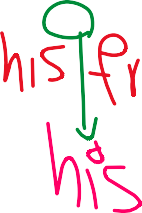 his fr
his